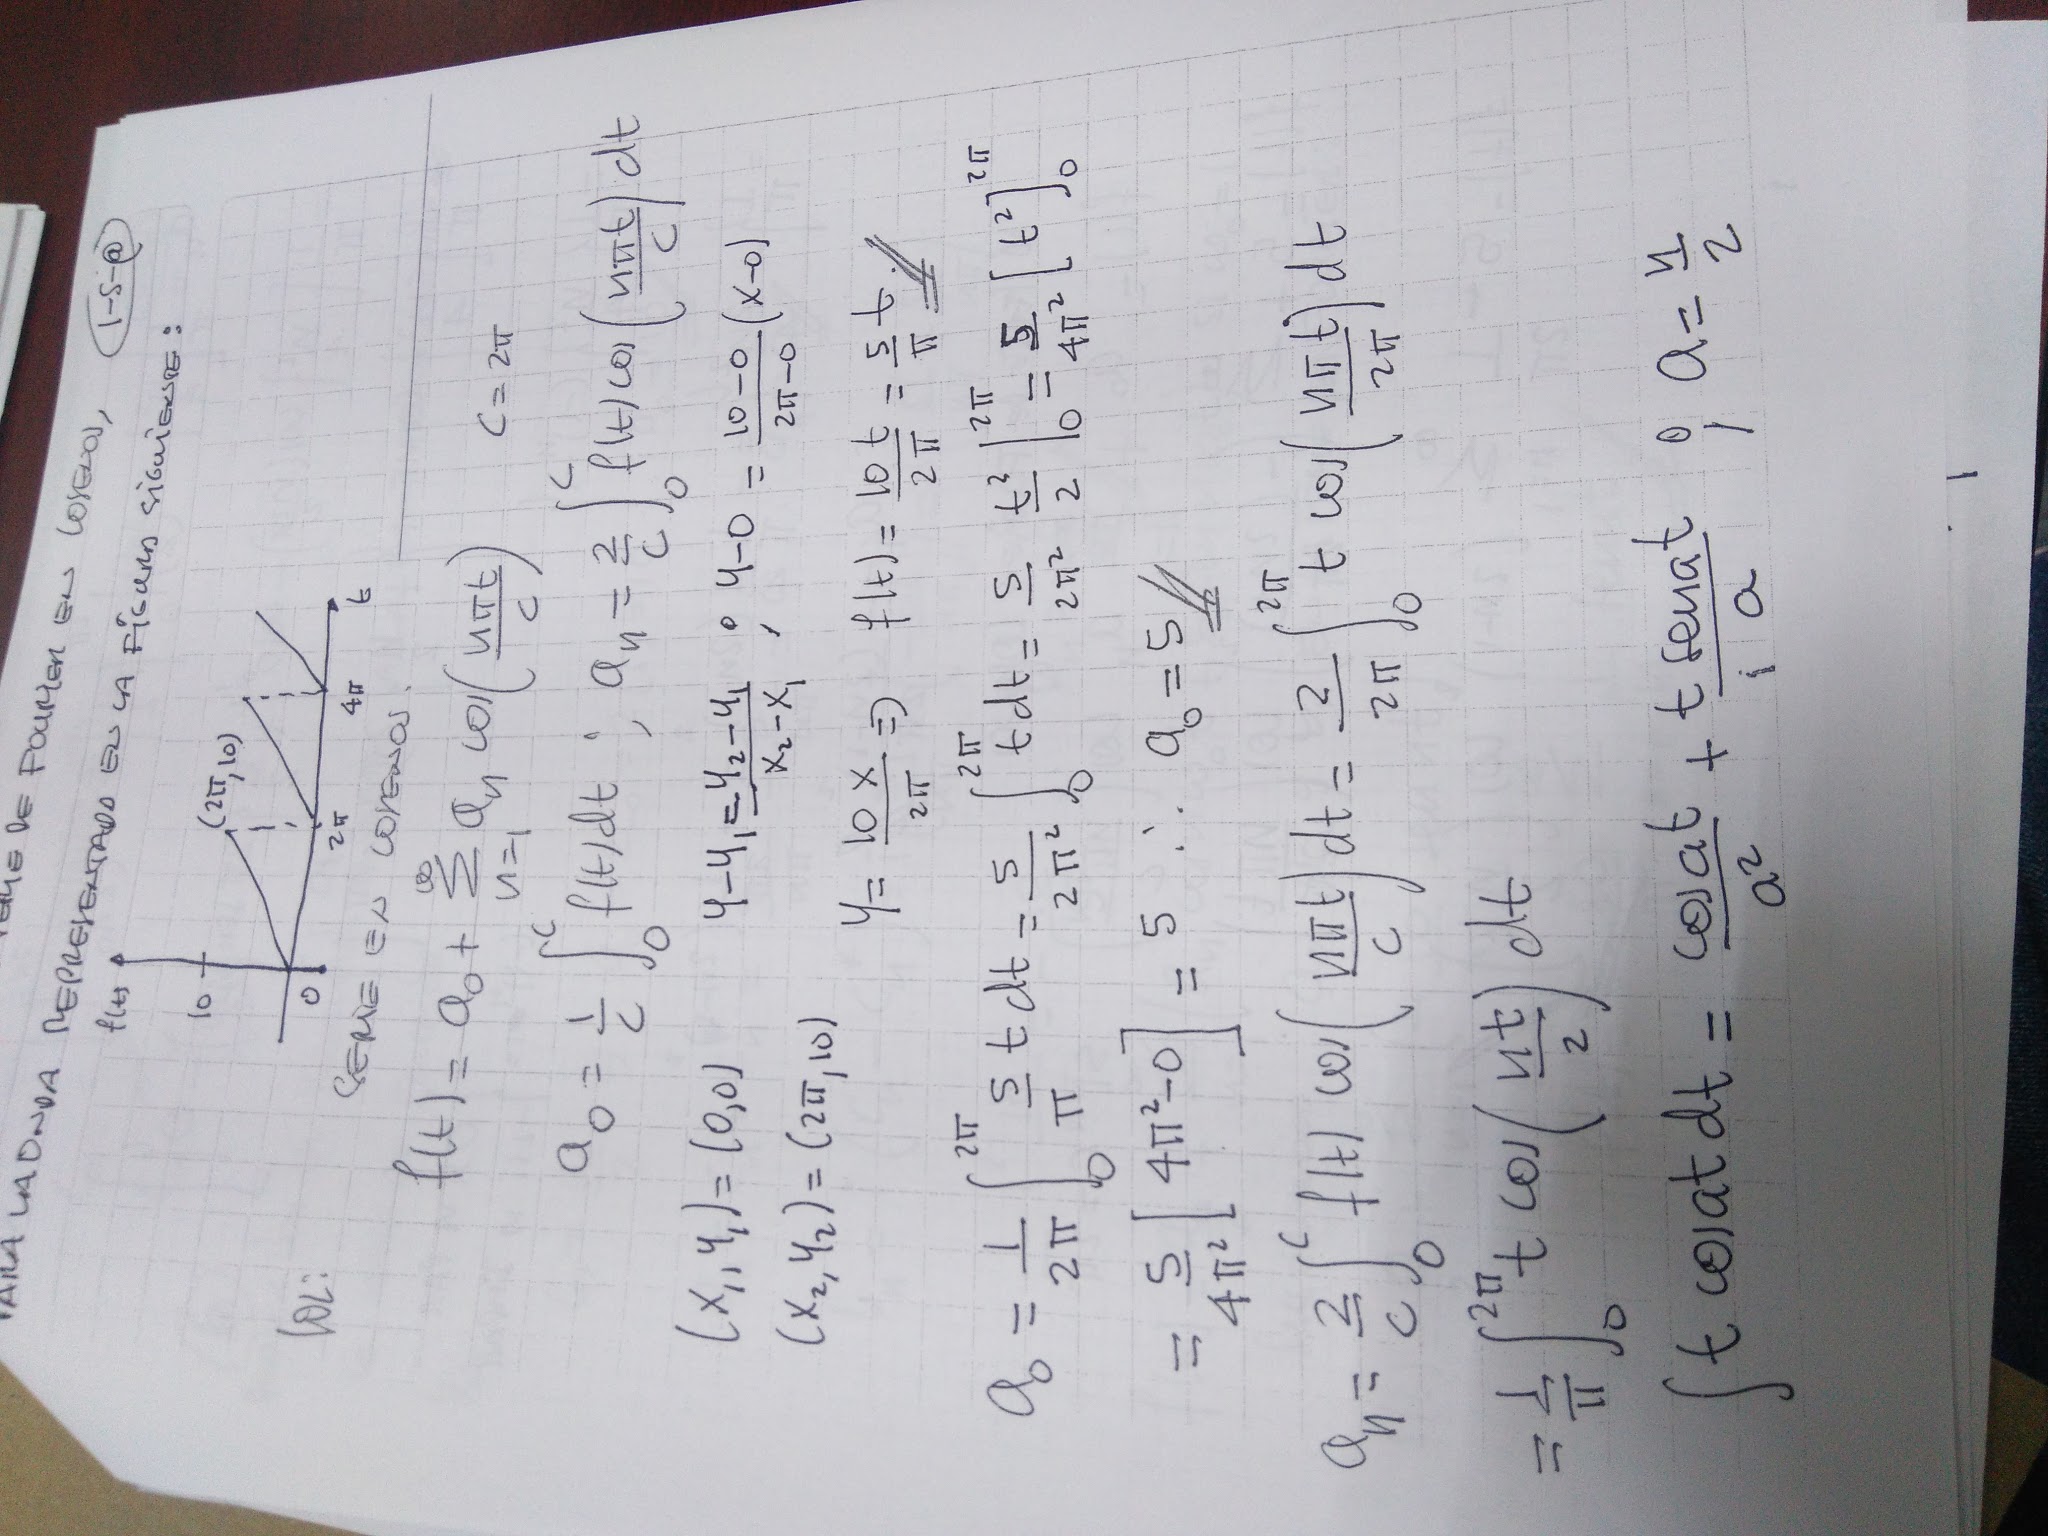 PARA LA ONDA REPRESENTADO EN LA FÍGURA SIGUIENTE:
SERIE DE FOURIER EN COSENOS,
1-S-@
f(t)
10
(2π,10)
0
2π
4π
t
SOL:
SERIE EN COSENOS.
f(t) = a₀ + ∑_{n=1}^{∞} aₙ cos(nπt/c)   C = 2π
a₀ = 1/c ∫₀^c f(t)dt ; aₙ = 2/c ∫₀^c f(t) cos(nπt/c) dt
(x₁,y₁) = (0,0)   y-y₁ = y₂-y₁/x₂-x₁ ; y-0 = 10-0/2π-0 (x-0)
(x₂,y₂) = (2π,10)
y = 10x/2π ⇒ f(t) = 10t/2π = 5/π t.
a₀ = 1/2π ∫₀^{2π} 5/π t dt = 5/2π² ∫₀^{2π} t dt = 5/2π² t²/2 |₀^{2π} = 5/4π² [t²]₀^{2π}
= 5/4π² [4π²-0] = 5 ∴ a₀ = 5
aₙ = 2/c ∫₀^c f(t) cos(nπt/c) dt = 2/2π ∫₀^{2π} t cos(nπt/2π) dt
= 1/π ∫₀^{2π} t cos(nt/2) dt
∫ t cosat dt = cosat/a² + t senat/a ; a = n/2